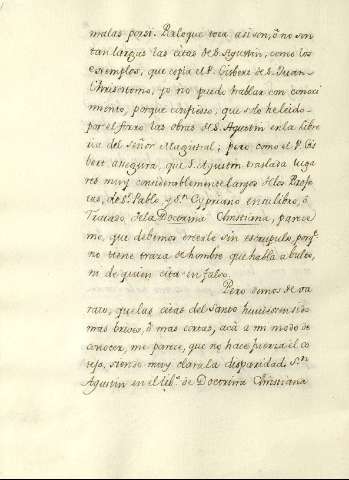 malas porsi. Paloque toca asi son, ô no son
tan largas las citas de S. Agustin, como los
exemplos, que copia el P. Gisbert de S. Juan
Chrisostomo, yo no puedo hablar con conoci
miento, porque confiesso, que solo he leido
por el forro las obras de S. Agustin en la libre
ria del señor Magistral; pero como el P. Gis
bert asegura, que S. Agustin traslada luga
res muy considerablemente largos de los Profe
tas, de Sn. Pablo, y Sn. Cypriano en su libro, ô
Tratado de la Doctrina Christiana, parece
me, que debemos creerle sin escrupulo, porqe.
no tiene traza de hombre que habla a bulto,
ni de quien cita en falso.
Pero demos de va
rato, que las citas del Santo huviessen sido
mas breves, ô mas cortas, acà a mi modo de
conocer, me parece, que no hace fuerza el co
tejo, siendo muy clara la disparidad. Sn.
Agustin en el libo. de Doctrina Christiana